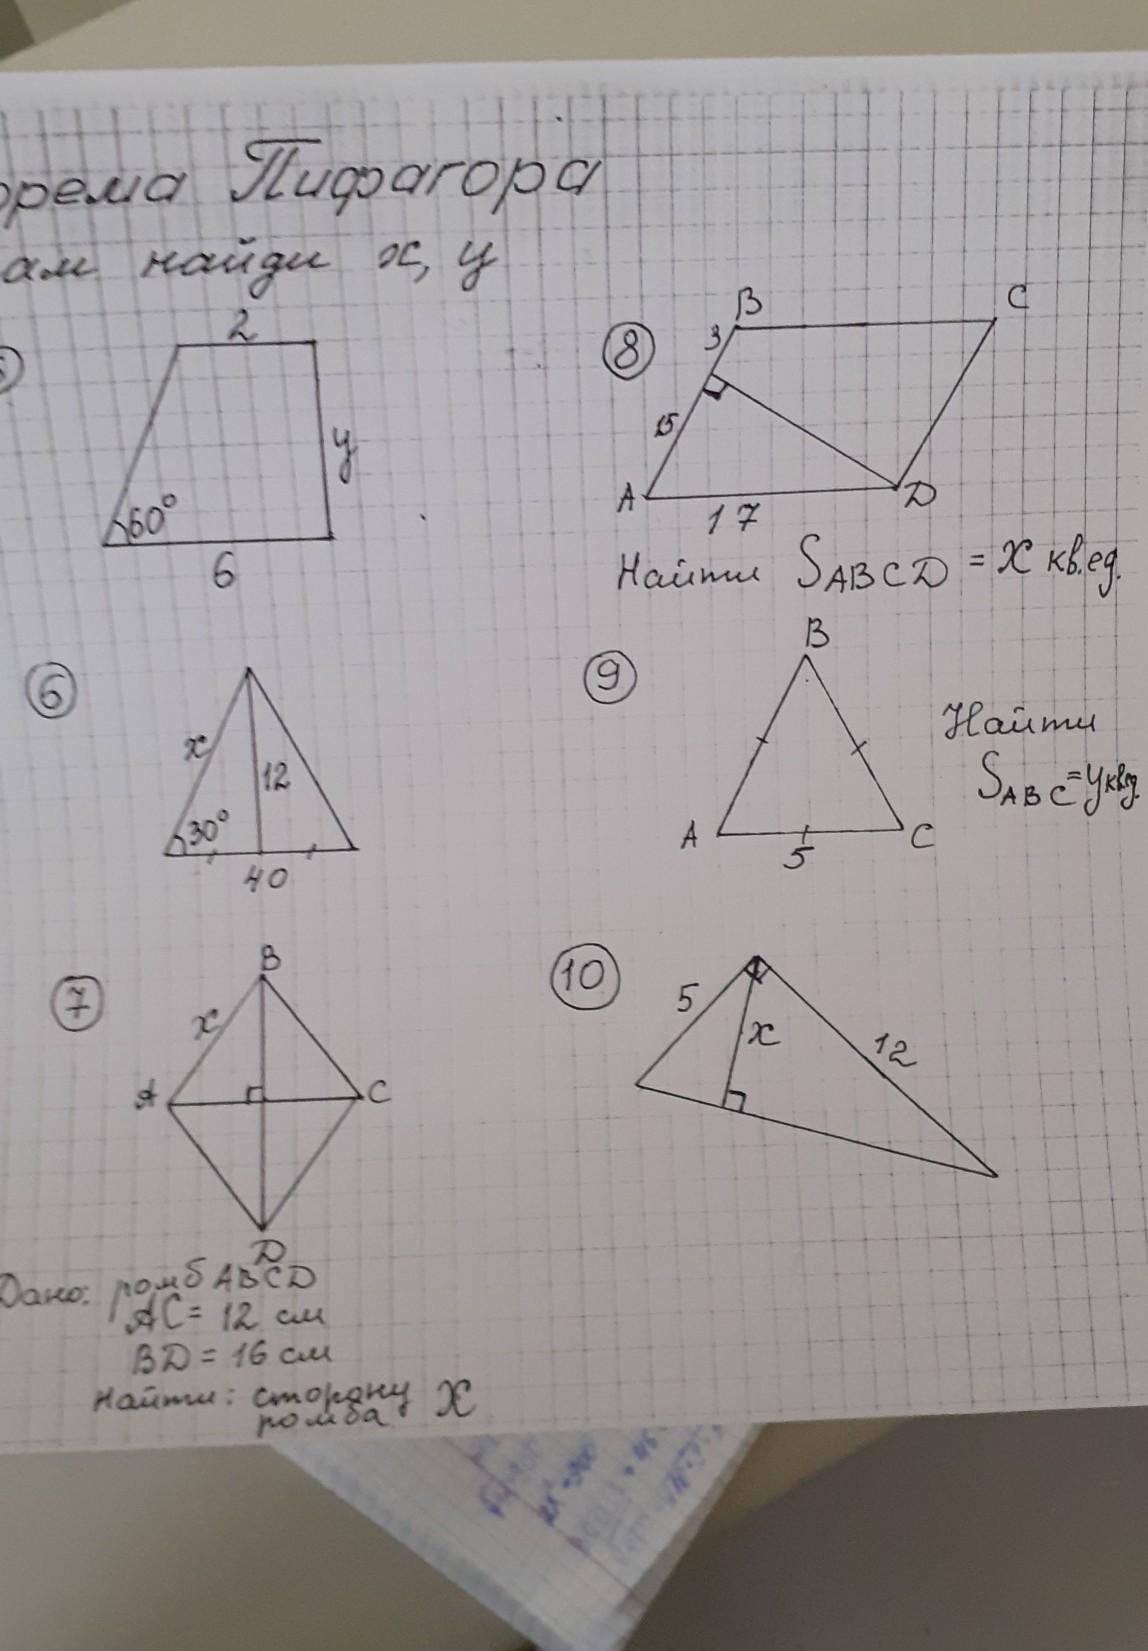 орема Пифагора
ам найди x, y
2
60°
y
6
8
B
C
3
15
A
D
17
Найти SABCD = x кв.ед.
6
x
12
30°
40
9
B
A
C
5
Найти
SABC = y кв.ед.
7
B
x
A
C
D
Дано: ромб ABCD
AC = 12 см
BD = 16 см
Найти: сторону x
ромба
10
5
x
12